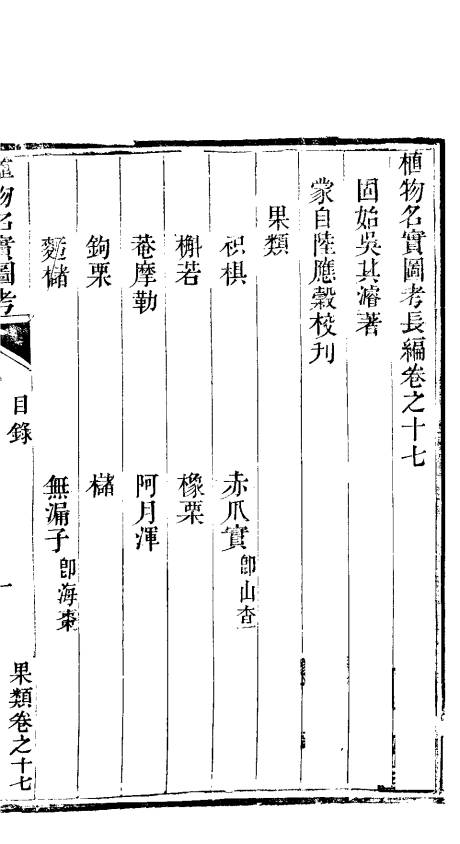 植物名實圖考長編卷之十七
固始吳其濬著
蒙自陸應穀校刊
果類
枳椇 赤爪實 卽山查
槲若 橡栗
菴摩勒 阿月渾
鉤栗 櫧
麪櫧 無漏子 卽海棗
植物名實圖考 目錄 一 果類卷之十七